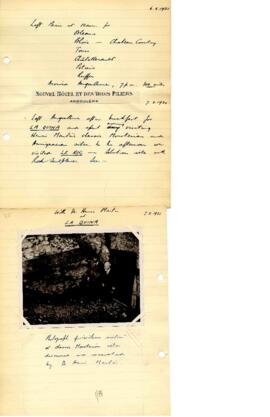 6.5.1950
Left Paris at noon for
Orleans
Blois — Chateau Country
Tours
Châtellerault
Poitiers
Ruffec
Arrive Angoulême, 7 p.m.
NOUVEL HÔTEL ET DES TROIS PILIERS
ANGOULÊME
Left Angoulême after breakfast for
LA QUINA and spent day visiting
Henri Martin's classic Mousterian and
Aurignacian sites. In the afternoon we
visited LE ROC — Solutrian site with
Rock Sculpture.
With Dr Henri Martin
at
LA QUINA
Photograph
of classic Mousterian site
discovered and excavated
by Dr Henri Martin